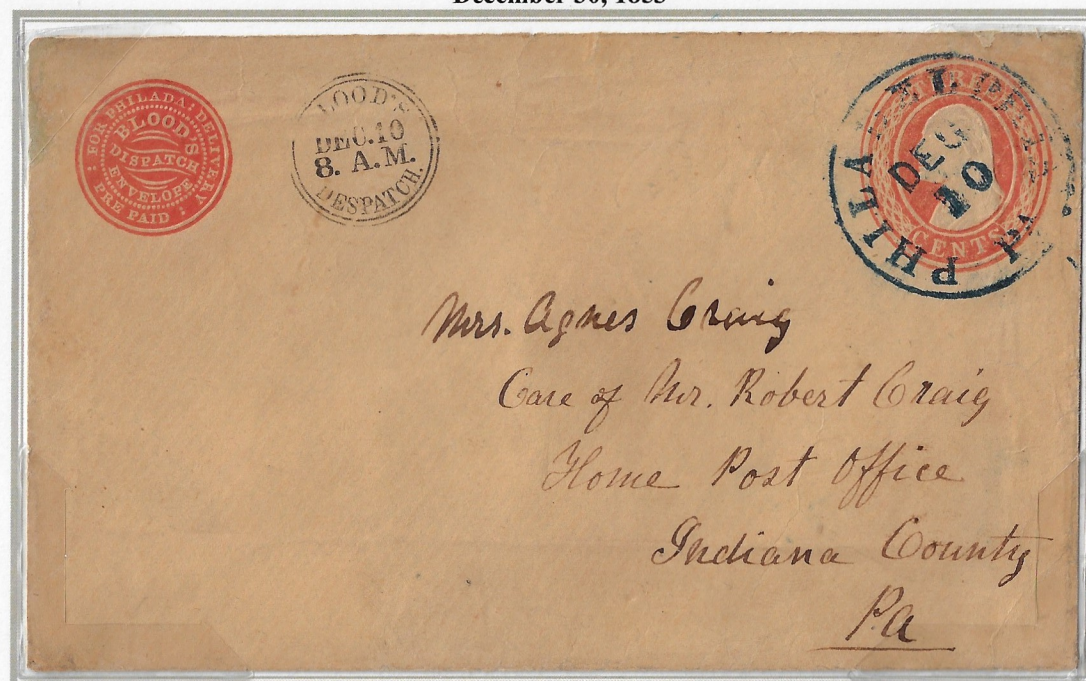 December 30, 1853
FOR PHILADA: DELIVERY
: PRE PAID :
BLOOD'S
DISPATCH
ENVELOPE
LOOD'S
DEC.10
8. A.M.
DESPATCH.
PHILADELPHIA Pa
DEC
10
CENTS
Mrs. Agnes Craig
Care of Mr. Robert Craig
Home Post Office
Indiana County
Pa